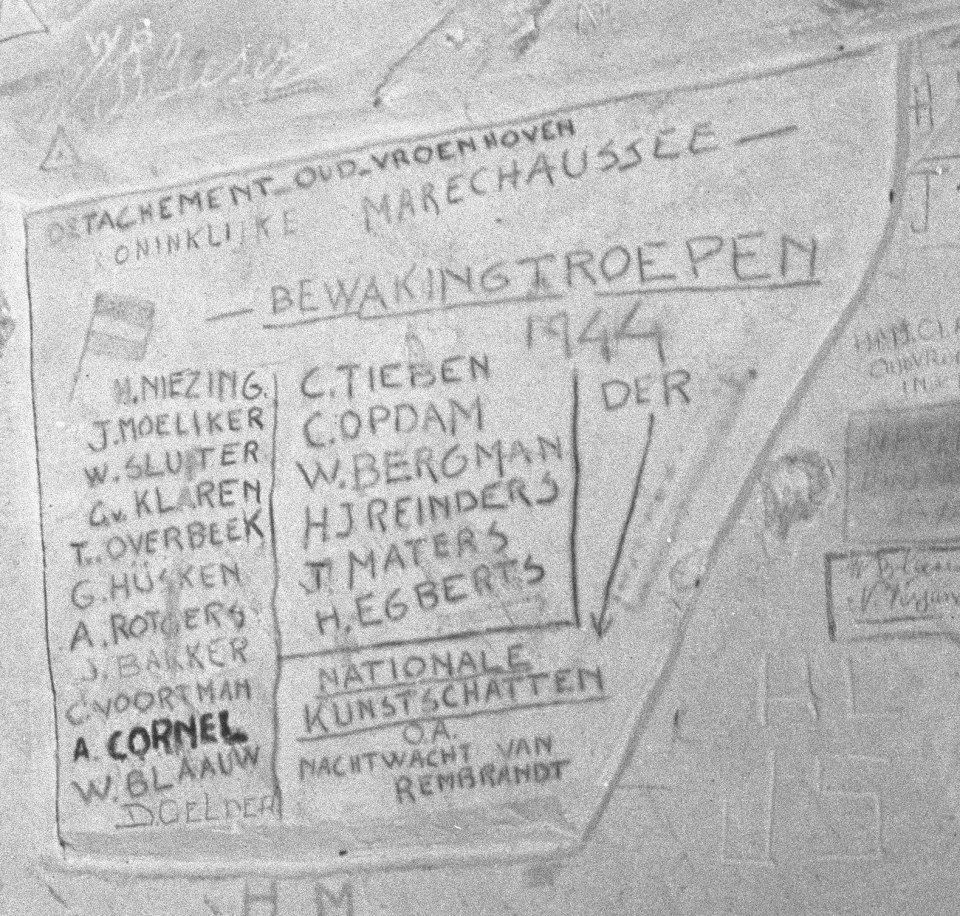 DETACHEMENT_OUD_VROENHOVEN
KONINKLIJKE MARECHAUSSEE —
— BEWAKINGTROEPEN
1944
DER
H.NIEZING.
J.MOELIKER
W.SLUITER
G.v.KLAREN
T..OVERBEEK
G.HÜSKEN
A.ROTGERS
J.BAKKER
C.VOORTMAN
A.CORNEL
W.BLAAUW
D.GELDER
C.TIEBEN
C.OPDAM
W.BERGMAN
HJREINDERS
J.MATERS
H.EGBERTS
NATIONALE
KUNSTSCHATTEN
O.A.
NACHTWACHT VAN
REMBRANDT
H M
H
J